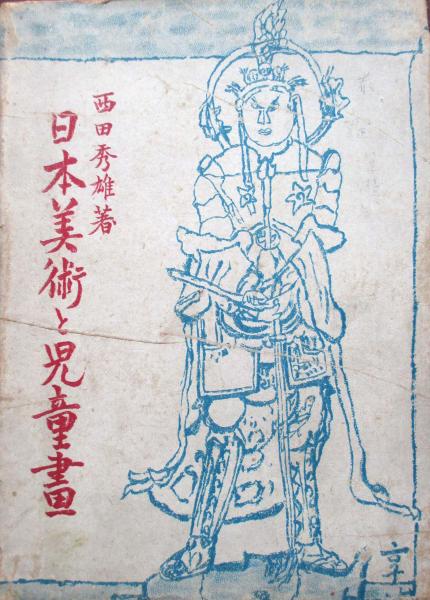 西田秀雄著
日本美術と児童畫